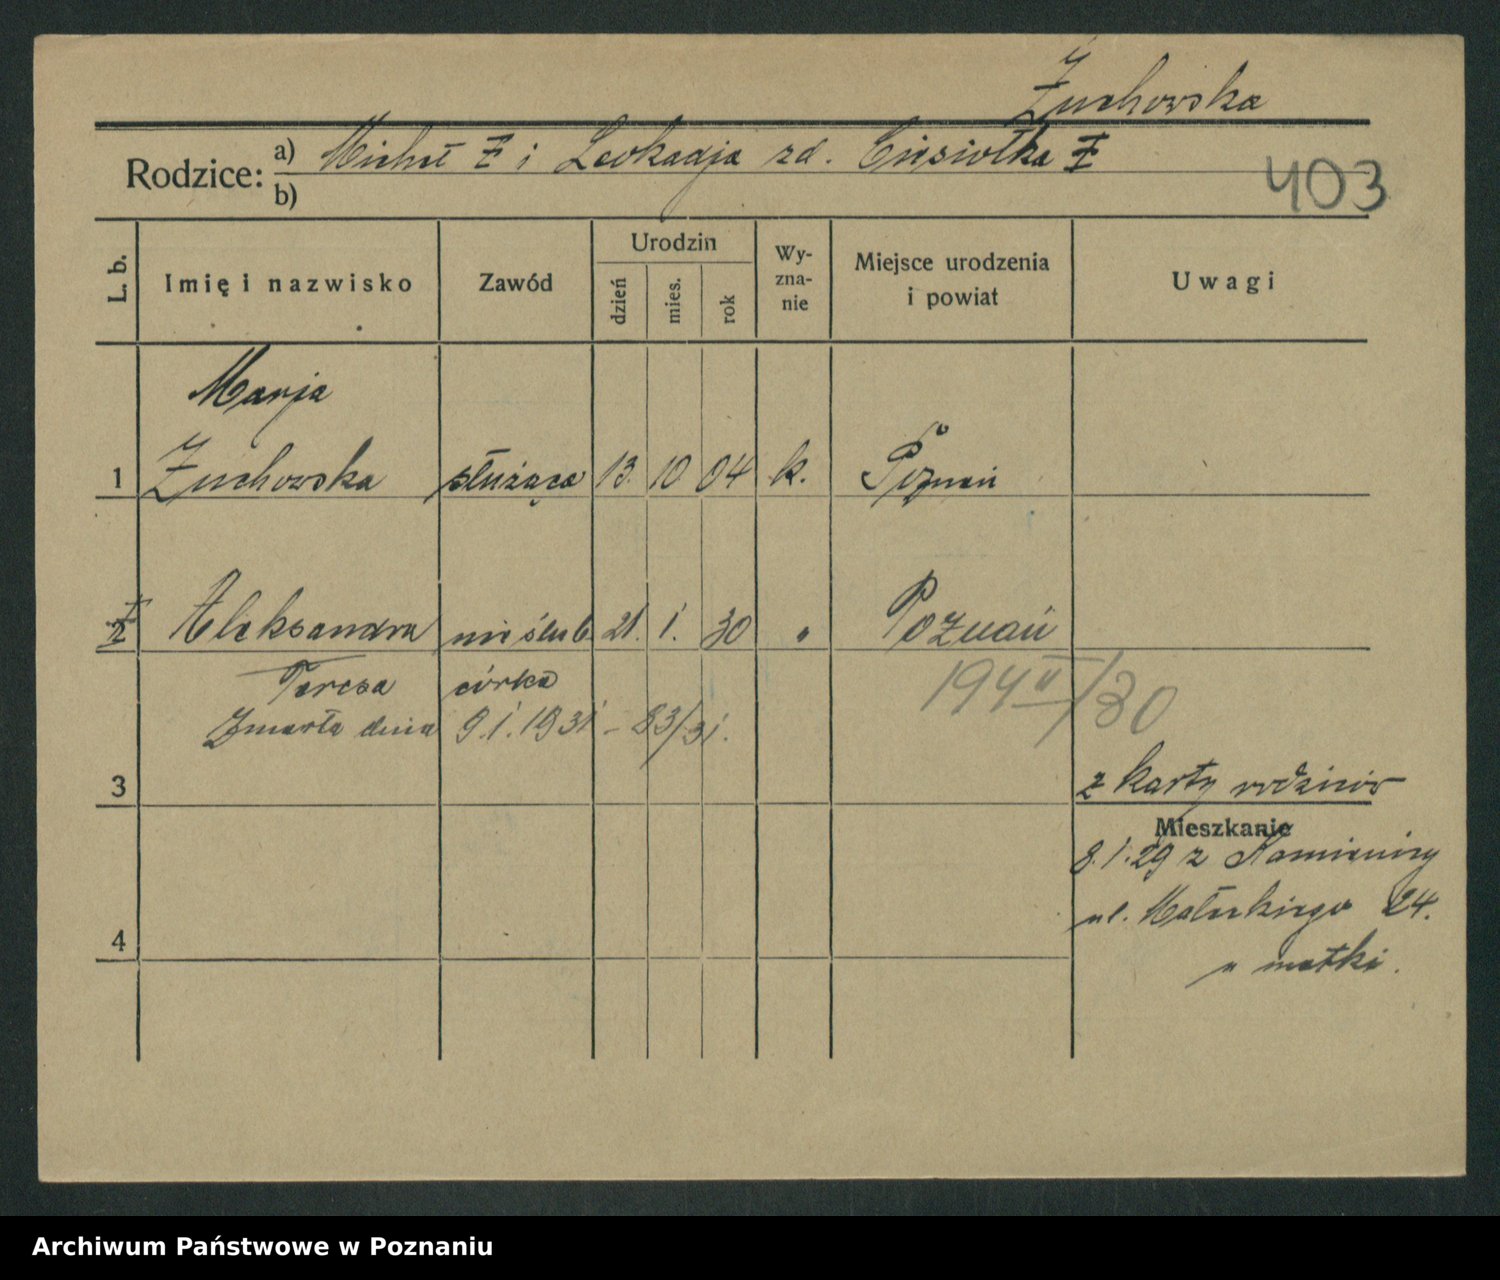 Żuchowska
Rodzice: a) Michał ‡ i Leokadja zd. Ciesiołka ‡
b)
403
L. b. Imię i nazwisko Zawód Urodzin dzień mies. rok Wyznanie Miejsce urodzenia i powiat Uwagi
Marja
1 Żuchowska służąca 13. 10 04 k. Poznań
2 Aleksandra nieślub. 21. 1. 30 " Poznań
Teresa córka
194 II/30
Zmarła dnia 9.1.1931 – 83/31.
3 z karty rodziców
Mieszkanie
8.1.29 z
ul. Małeckiego 24.
4
u matki.
Archiwum Państwowe w Poznaniu